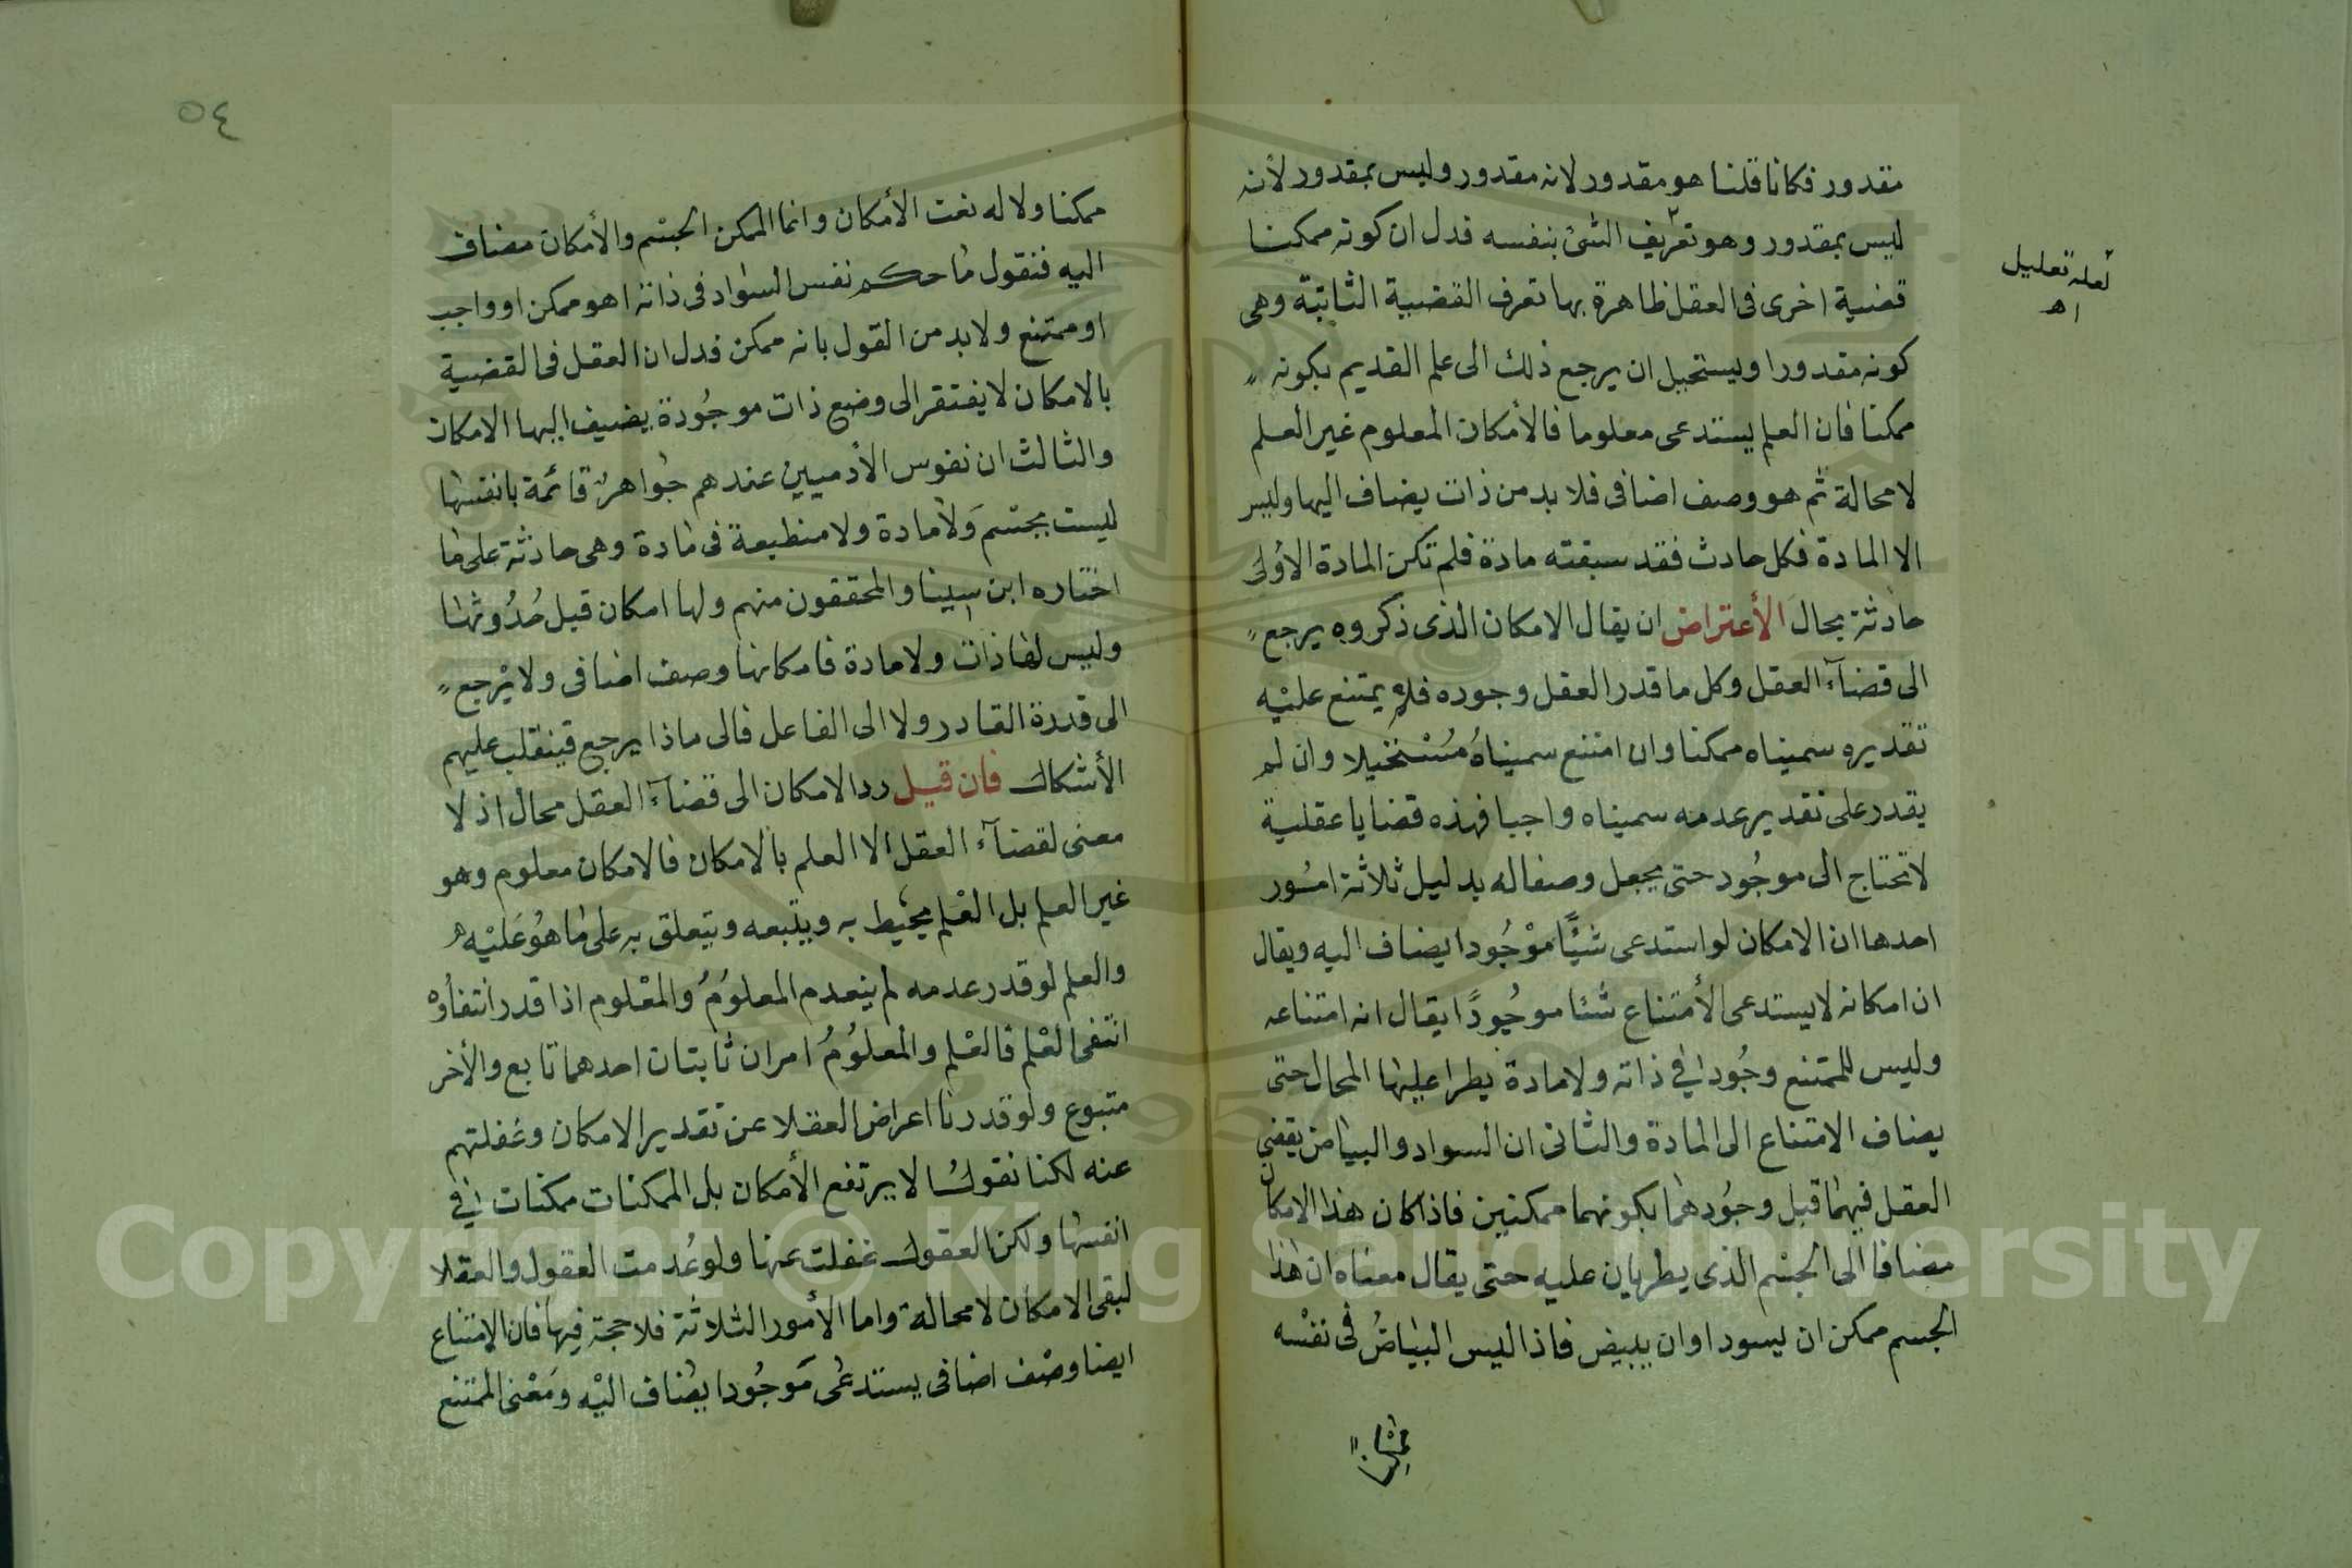 مقدور فكانا قلنا هو مقدور لانه مقدور وليس بمقدور لأنه
ليس بمقدور وهو تعريف الشئ بنفسه فدل ان كونه ممكنا
قضية اخرى فى العقل ظاهرة بها تعرف القضية الثانية وهى
كونه مقدورا ويستحيل ان يرجع ذلك الى علم القديم بكونه
ممكنا فان العلم يستدعى معلوما فالأمكان المعلوم غير العلم
لا محالة ثم هو وصف اضافى فلا بد من ذات يضاف اليها وليس
الا المادة فكل حادث فقد سبقته مادة فلم تكن المادة الأولى
حادثة بحال الأعتراض ان يقال الامكان الذى ذكروه يرجع
الى قضآء العقل وكل ما قدر العقل وجوده فلم يمتنع عليْه
تقديره سميناه ممكنا وان امتنع سميناهُ مُسْتحيلا وان لم
يقدر على تقدير عدمه سميناه واجبا فهذه قضايا عقلية
لا تحتاج الى موجُود حتى يجعل وصفا له بدليل ثلاثة امُور
احدها ان الامكان لو استدعى شيًا موْجُودا يضاف اليه ويقال
ان امكانه لا يستدعى الأمتناع شئا موجُودًا يقال انه امتناعه
وليس للممتنع وجُودا في ذاته ولا مادة يطرا عليها المحال حتى
يضاف الامتناع الى المادة والثانى ان السواد والبياض يقضي
العقل فيهما قبل وجُودهما بكونهما ممكنين فاذا كان هذا الامكان
مضافا الى الجسْم الذى يطريان عليه حتى يقال معناه ان هذا
الجسم ممكن ان يسود او ان يبيض فاذا ليس البياضُ فى نفسْه
ممكنا
لعله تعليل
اهـ
٥٤
ممكنا ولا له نعت الأمكان وانما الممكن الجسْم والأمكان مضاف
اليه فنقول ما حكم نفس السواد فى ذاته اهو ممكن او واجب
او ممتنع ولا بد من القول بانه ممكن فدل ان العقل فى القضية
بالامكان لا يفتقر الى وضع ذات موجُودة يضيف اليها الامكان
والثالث ان نفوس الأدميين عندهم جواهرٌ قائمة بانفسها
ليست بجسْم وَلا مادة ولا منطبعة فى مادة وهى حادثة على ما
اختاره ابن سينا والمحققون منهم ولها امكان قبل حُدُوثها
وليس لها ذات ولا مادة فامكانها وصف اضافى ولا يرْجع
الى قدرة القادر ولا الى الفاعل فالى ماذا يرجع فينقلب عليهم
الأشكال فان قيل رد الامكان الى قضآء العقل محال اذ لا
معنى لقضآء العقل الا العلم بالامكان فالامكان معلوم وهو
غير العلم بل العْلم يحيط به ويتبعه ويتعلق به على ما هُو عَليْه
والعلم لو قدر عدمه لم ينعدم المعلوُمُ والمعْلوم اذا قدر انتفاؤه
انتفى العْلم فالعْلم والمعلوُمُ امران ثابتان احدهما تابع والأخر
متبوع ولو قدرنا اعراض العقلا عن تقدير الامكان وغفلتهم
عنه لكنا نقول لا يرتفع الأمكان بل الممكنات ممكنات في
انفسها ولكن العقول غفلت عنها ولو عُدمت العقول والعقلا
لبقى الامكان لا محالة واما الأمور الثلاثة فلا حجة فيها فان الامتناع
ايضا وصْف اضافى يستدعى مَوجُودا يضاف اليْه وَمَعْنى الممتنع
Copyright © King Saud University